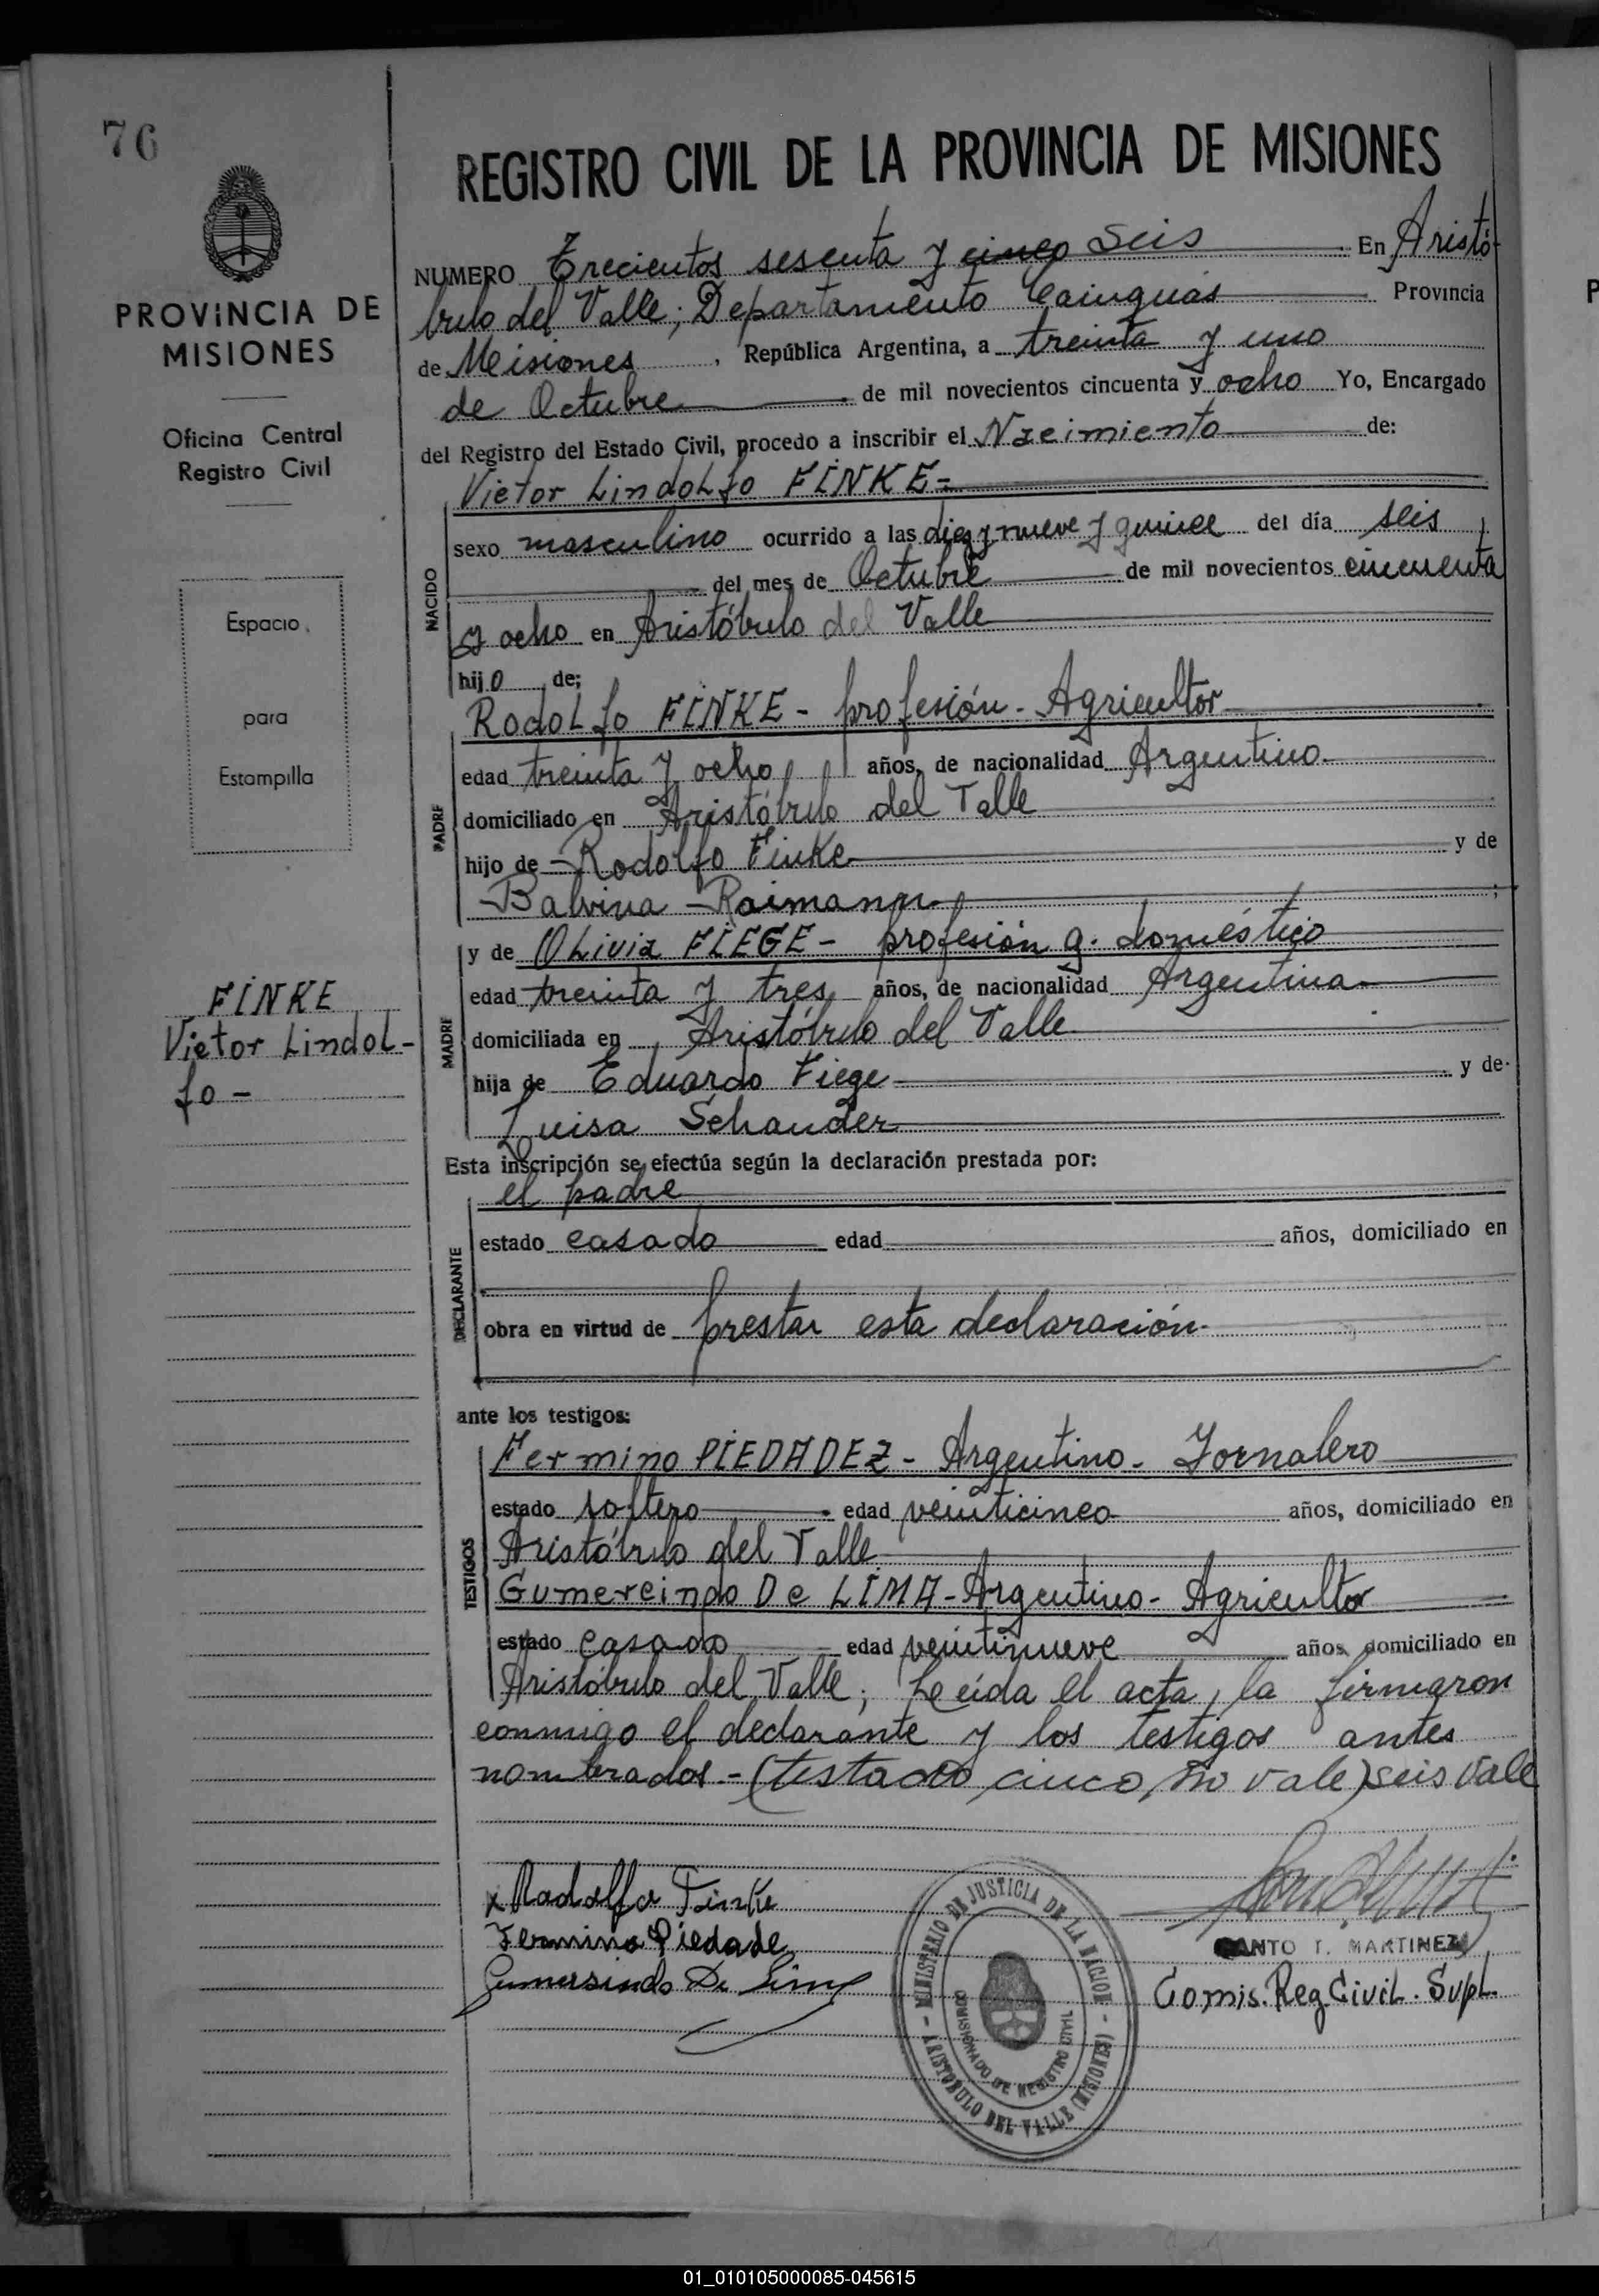 76
REGISTRO CIVIL DE LA PROVINCIA DE MISIONES
NUMERO Trecientos sesenta y cinco seis En Aristó
bulo del Valle; Departamento Cainguás Provincia
de Misiones, República Argentina, a treinta y uno
de Octubre de mil novecientos cincuenta y ocho Yo, Encargado
del Registro del Estado Civil, procedo a inscribir el Nacimiento de:
Victor Lindolfo FINKE=
sexo masculino ocurrido a las diez y nueve y quince del día seis
del mes de Octubre de mil novecientos cincuenta
y ocho en Aristóbulo del Valle
hijo de;
Rodolfo FINKE - profesión - Agricultor
edad treinta y ocho años, de nacionalidad Argentino
domiciliado en Aristóbulo del Valle
hijo de Rodolfo Finke y de
Balvina Raimann;
y de Olivia FIEGE - profesión q. doméstico
edad treinta y tres años, de nacionalidad Argentina
domiciliada en Aristóbulo del Valle
hija de Eduardo Fiege y de
Luisa Schander
Esta inscripción se efectúa según la declaración prestada por:
el padre
estado casado edad años, domiciliado en
obra en virtud de prestar esta declaración
ante los testigos:
Fermino PIEDADEZ - Argentino - Jornalero
estado soltero edad veinticinco años, domiciliado en
Aristóbulo del Valle
Gumercindo De LIMA - Argentino - Agricultor
estado casado edad veintinueve años domiciliado en
Aristóbulo del Valle; Leeida el acta, la firmaron
conmigo el declarante y los testigos antes
nombrados - (testado cinco, no vale) seis vale
Rodolfo Finke
Fermino Piedade
Gumersindo De Lima
SANTO T. MARTINEZ
Comis. Reg. Civil. Supl.
MINISTERIO DE JUSTICIA DE LA NACION - ARISTOBULO DEL VALLE (MISIONES) -
COMISIONADO DE REGISTRO CIVIL
PROVINCIA DE
MISIONES
Oficina Central
Registro Civil
Espacio
para
Estampilla
FINKE
Victor Lindol-
fo -
NACIDO
PADRE
MADRE
DECLARANTE
TESTIGOS
P
01_010105000085-045615